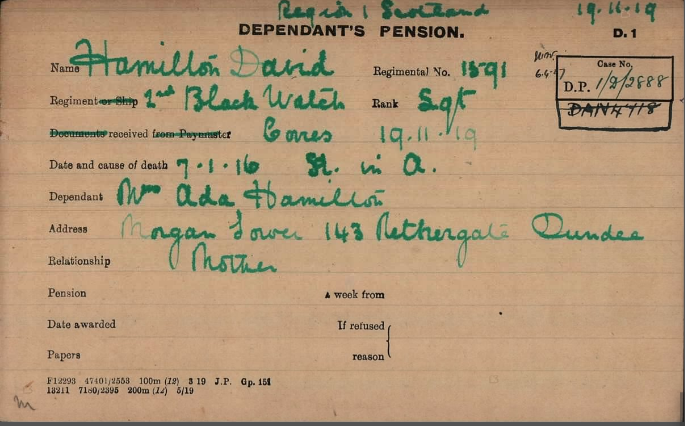 Region 1 Scotland 19.11.19
DEPENDANT'S PENSION. D.1
Name Hamilton David Regimental No. 1591
Case No.
D.P. 1/2/2888
DAN4718
Regiment or Ship 2nd Black Watch Rank Sgt
Documents received from Paymaster Cores 19.11.19
Date and cause of death 7.1.16 K. in A.
Dependant Mrs Ada Hamilton
Address Morgan Tower 143 Nethergate Dundee
Relationship Mother
Pension A week from
Date awarded If refused
Papers reason
F12293 47401/2553 100m (12) 3 19 J.P. Gp. 151
13211 7180/2395 200m (12) 5/19
m